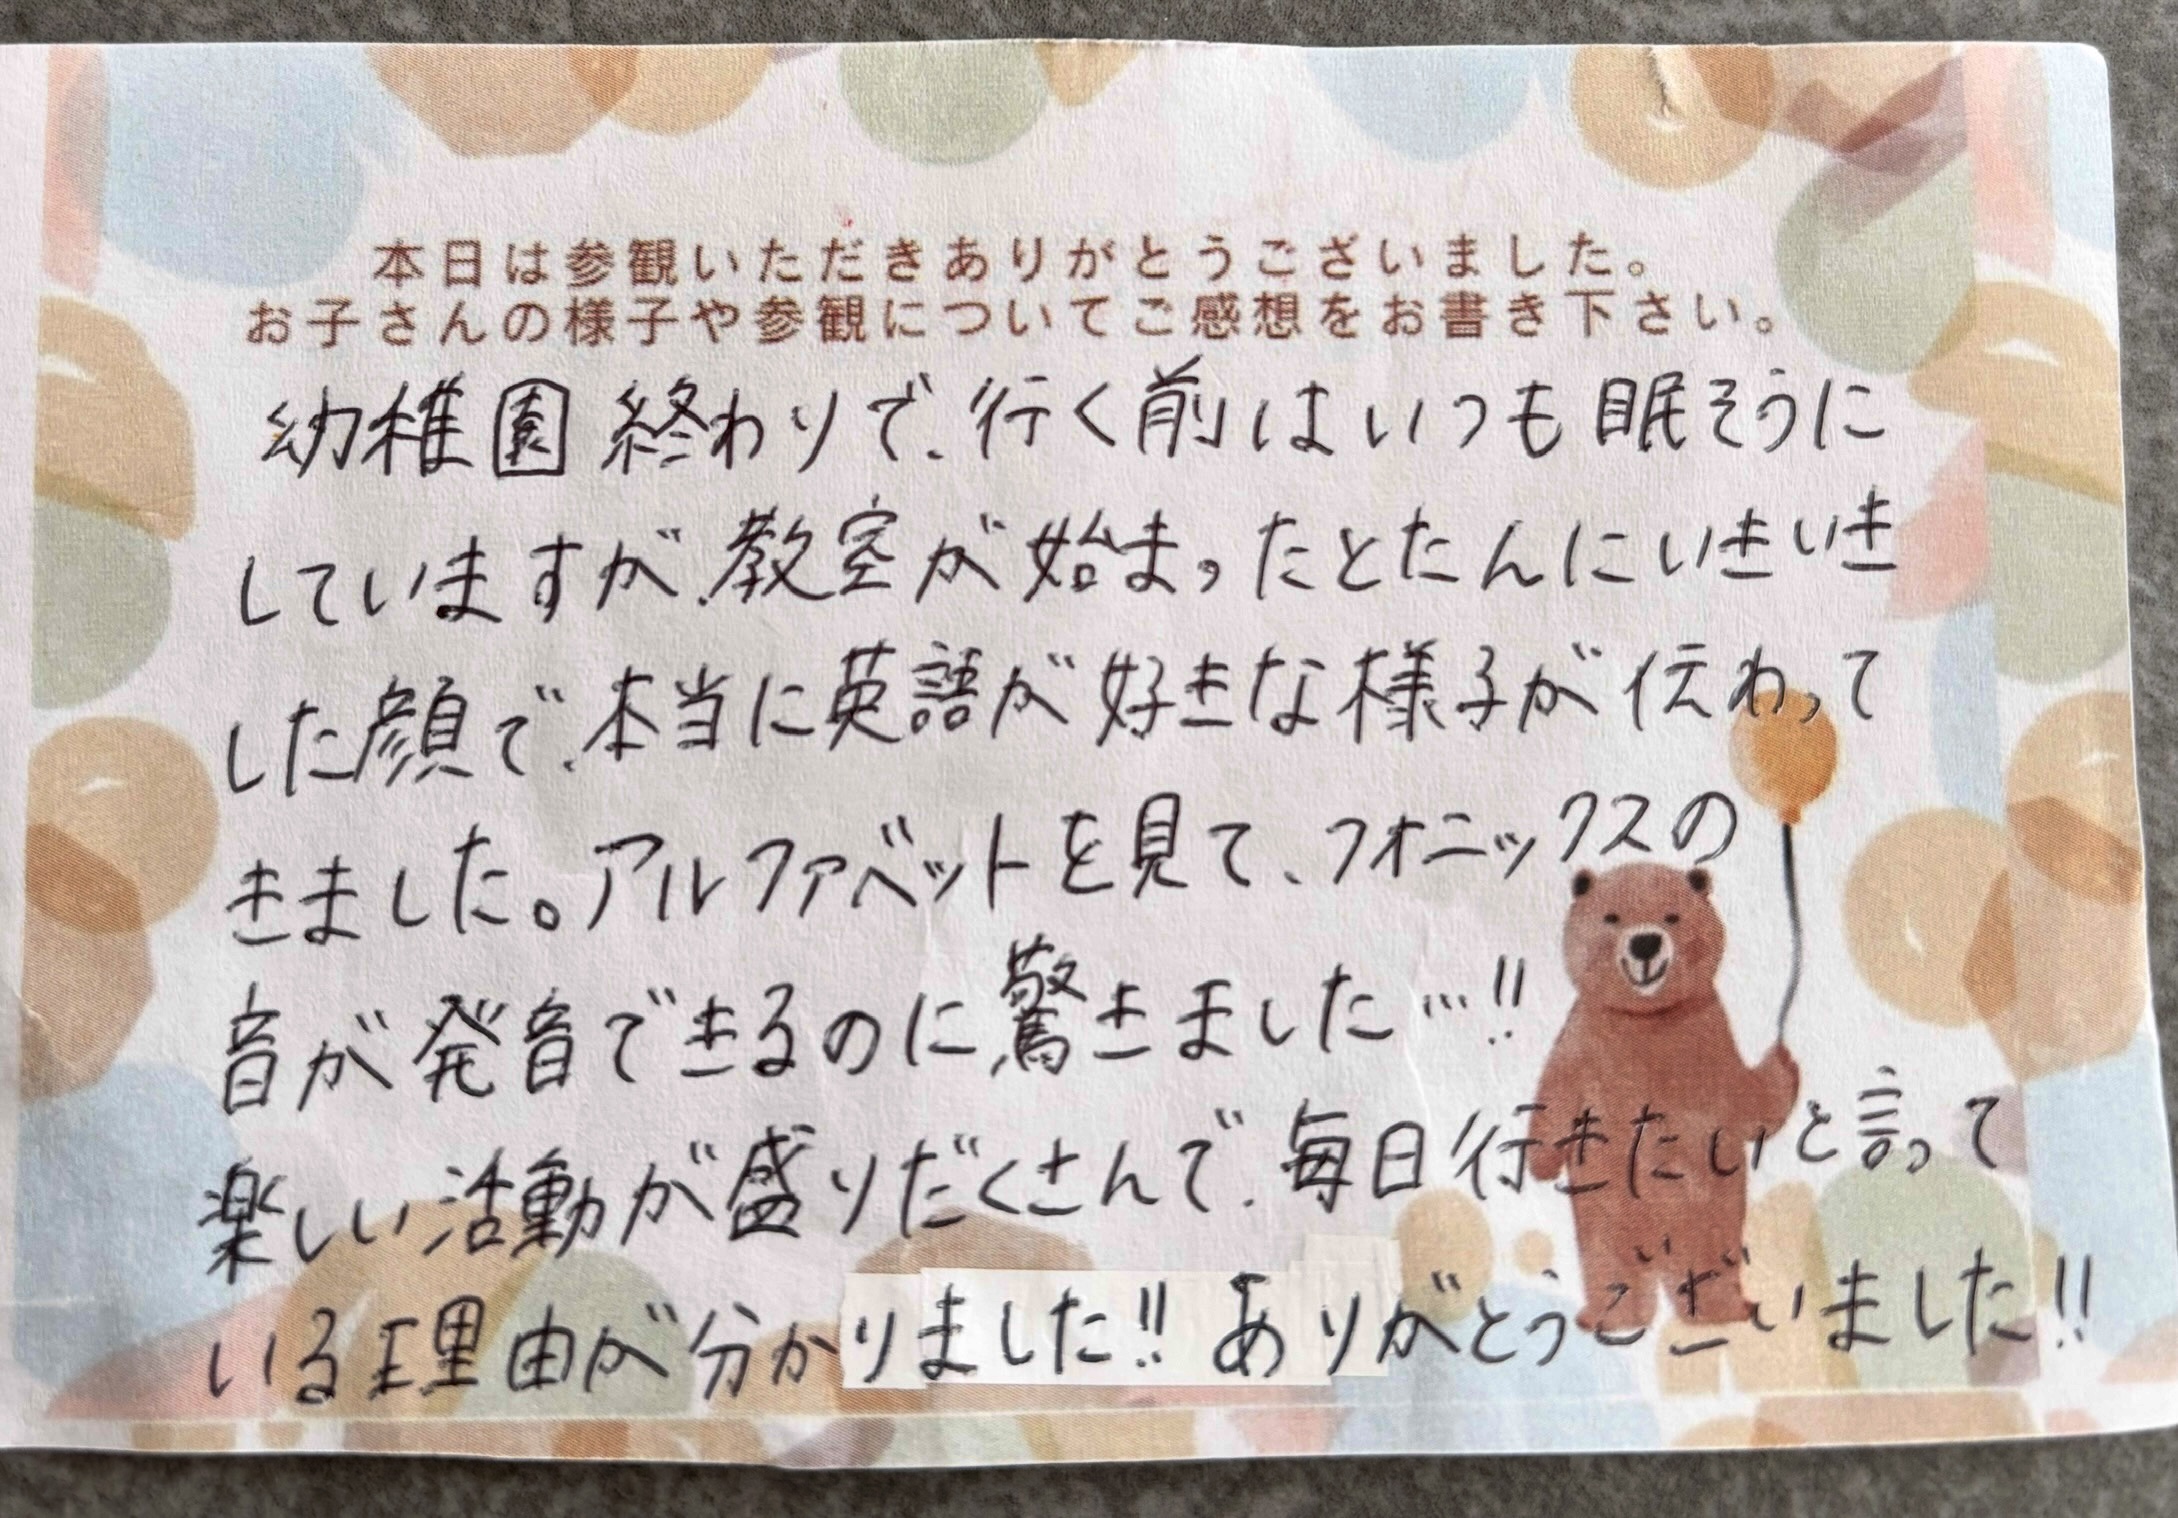 本日は参観いただきありがとうございました。
お子さんの様子や参観についてご感想をお書き下さい。
幼稚園終わりで、行く前はいつも眠そうに
していますが、教室が始まったとたんにいきいき
した顔で、本当に英語が好きな様子が伝わって
きました。アルファベットを見て、フォニックスの
音が発音できるのに驚きました…!!
楽しい活動が盛りだくさんで、毎日行きたいと言って
いる理由が分かりました!! ありがとうございました!!